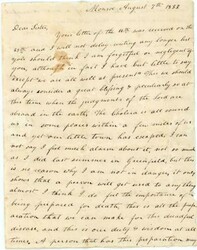 Monroe August 5th 1832
Dear Sister,
Your letter of the was received on the
and I will not delay writing any longer but
you should think I am forgetful or negligent
your in fact I have but little to say
except we are all well at present This we should
always consider a great blessing & peculiarly so at
this time when the judgments of the Lord are
abroad in the earth. The Cholera is all around
us in some places within a few miles of us
and yet our little town has escaped. I can
not say I feel much alarm about it, not so much
as I did last summer in Greenfield, but this
is no reason why I am not in danger, it only
shows that a person will get used to any thing
almost. I think I do feel the importance of
being prepared for death, this is all the prepa
ration that we can make for the dreadful
disease, and this is our duty & wisdom at all
times. A person that has this preparation may